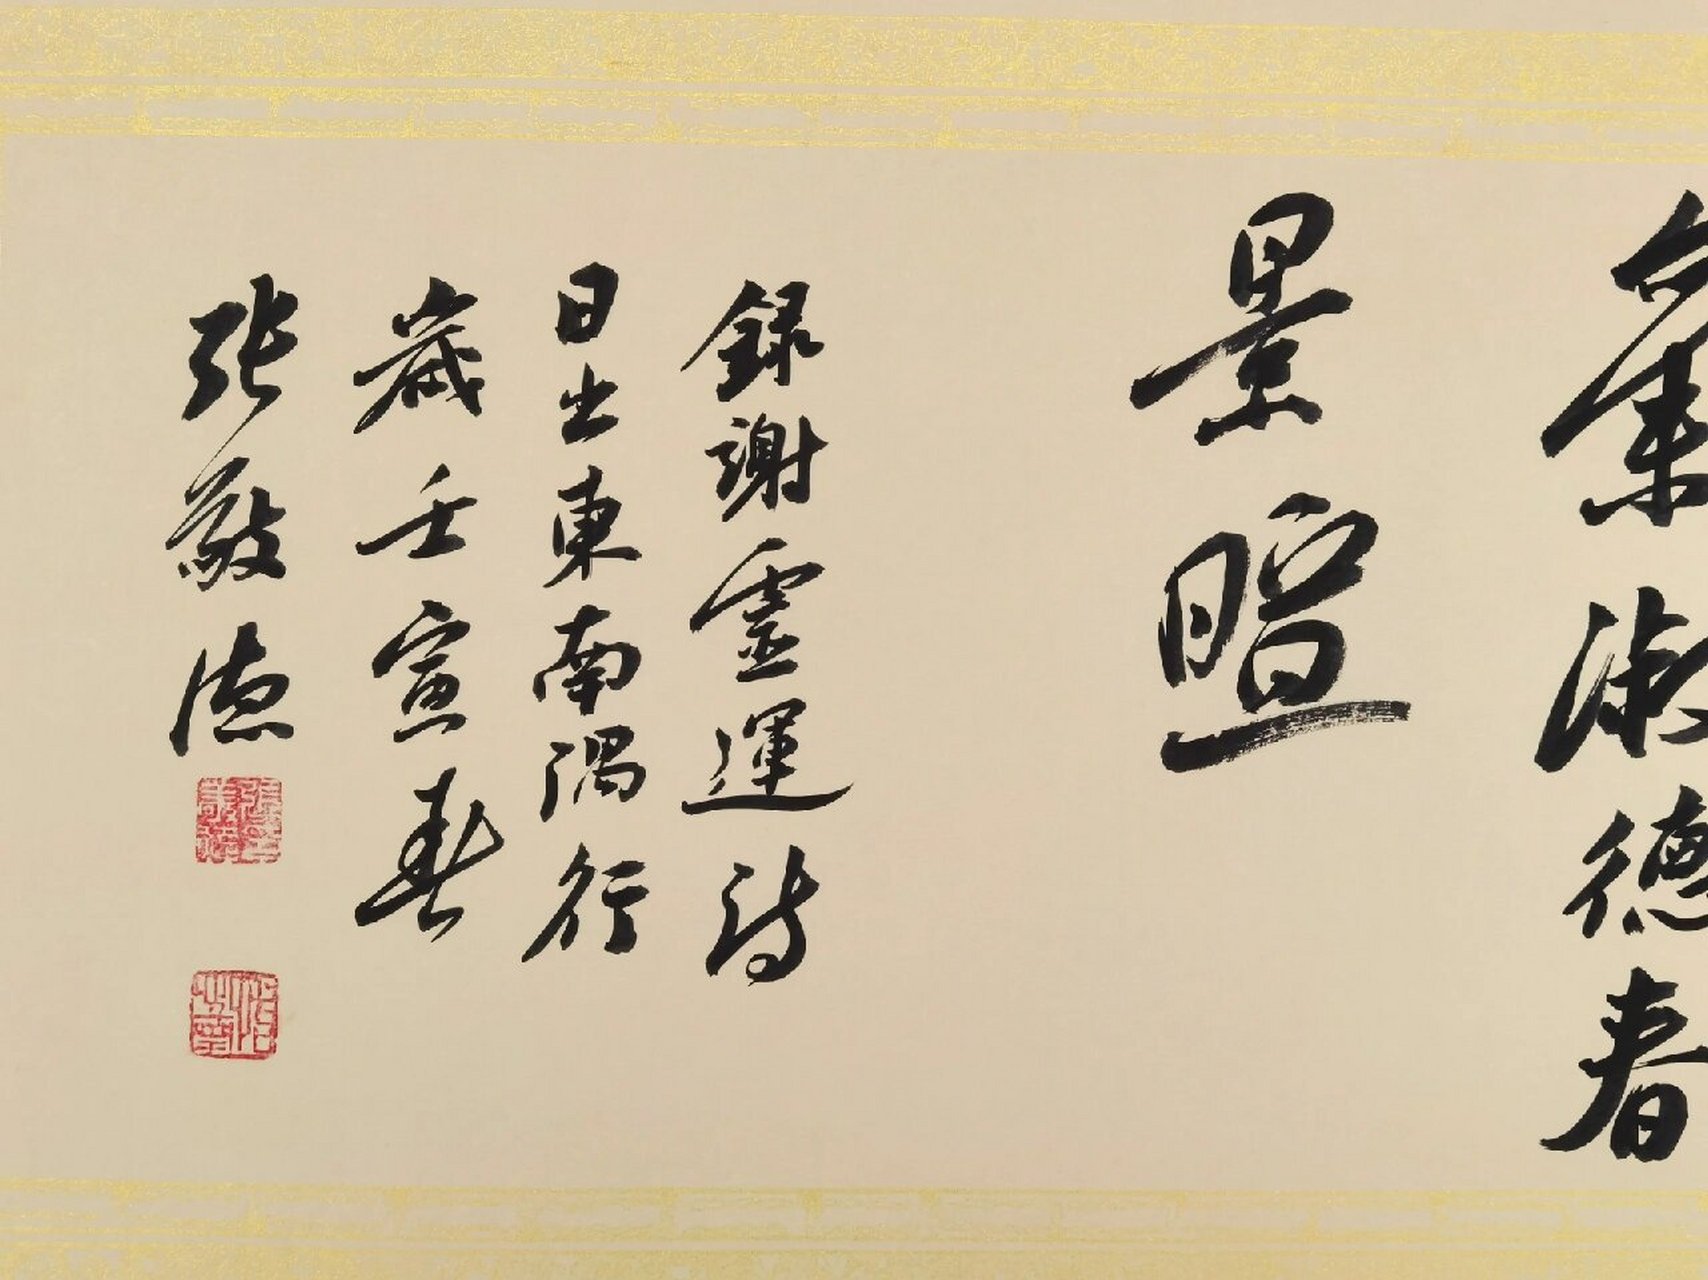 氣淑德春
景暄
錄謝靈運詩
日出東南隅行
歲壬寅春
張敬德